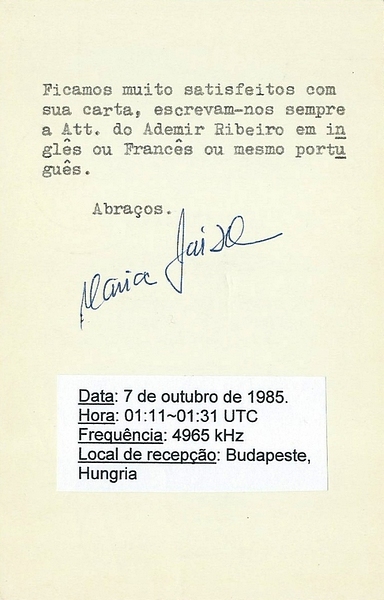 Ficamos muito satisfeitos com
sua carta, escrevam-nos sempre
a Att. do Ademir Ribeiro em in
glês ou Francês ou mesmo portu
guês.
Abraços.
Maria
Data: 7 de outubro de 1985.
Hora: 01:11~01:31 UTC
Frequência: 4965 kHz
Local de recepção: Budapeste,
Hungria